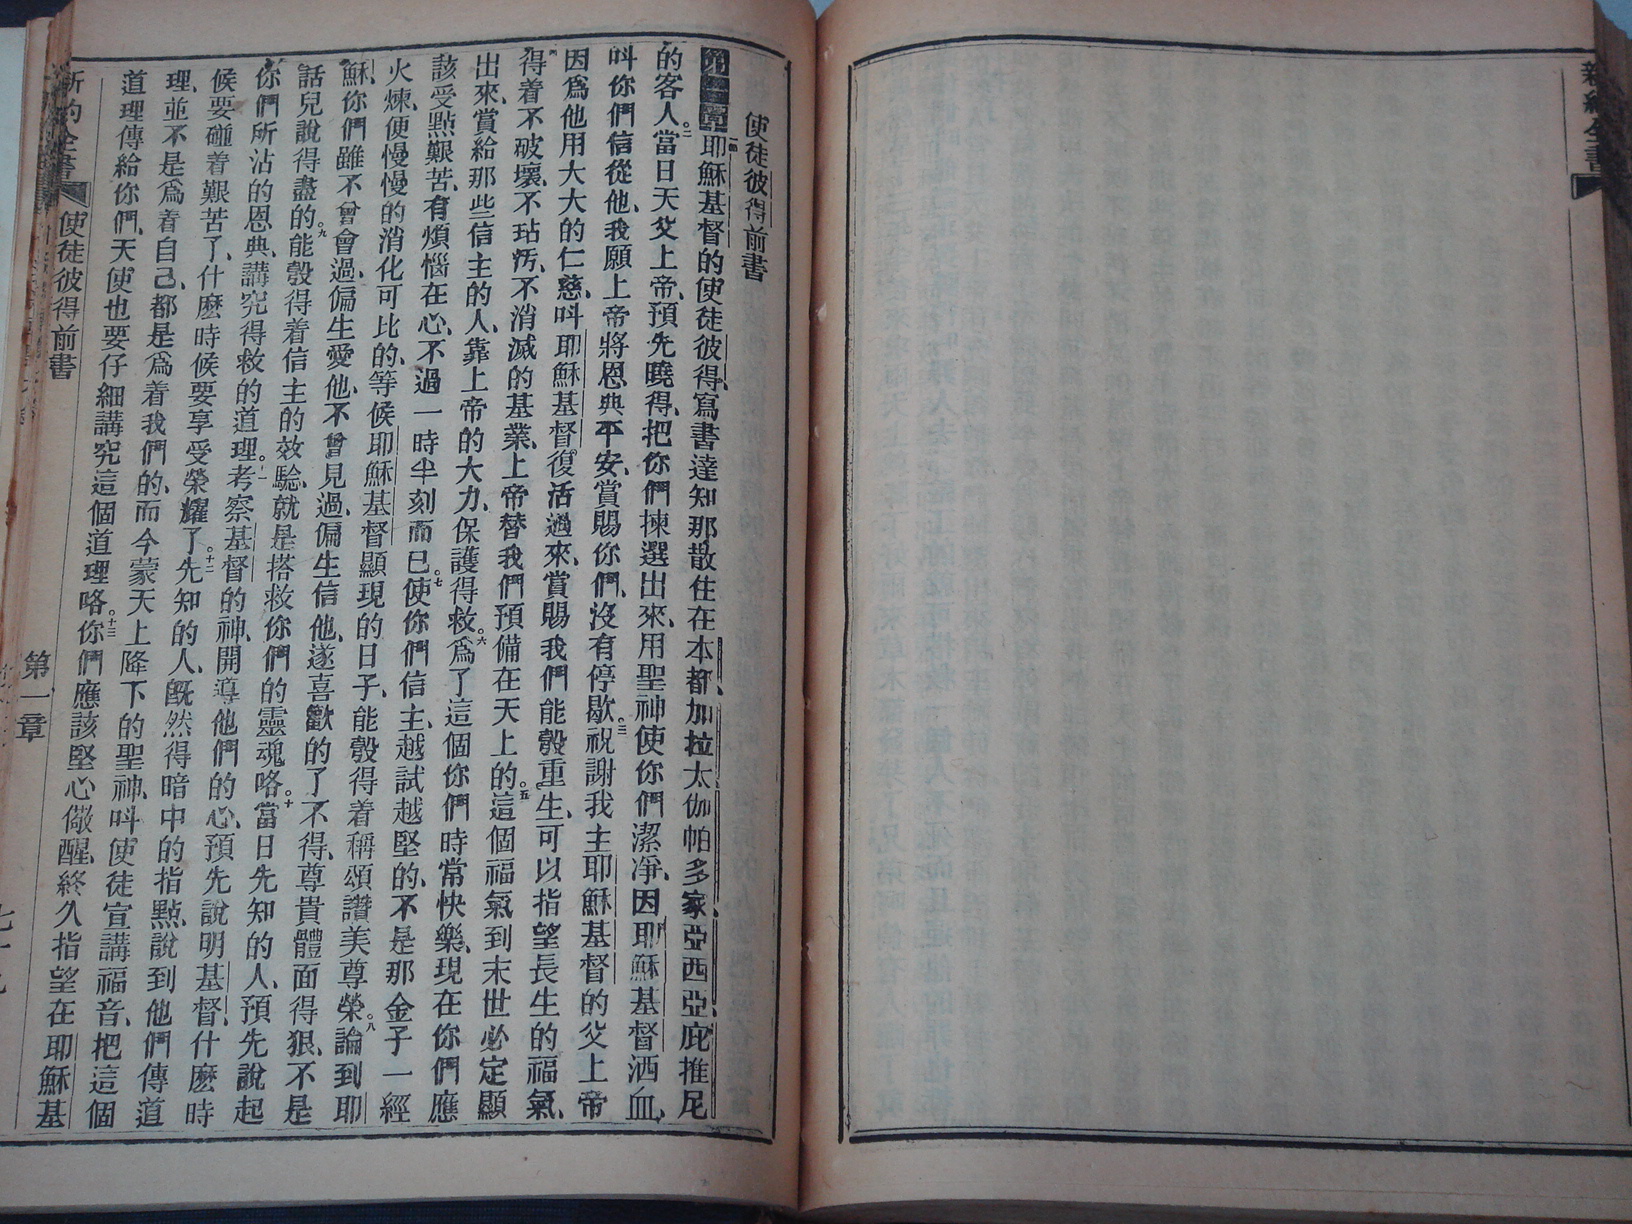 新約全書
使徒彼得前書
第一章耶穌基督的使徒彼得、寫書達知那散住在本都、加拉太、伽帕多家、亞西亞、庇推尼
的客人。二當日天父上帝、預先曉得、把你們揀選出來、用聖神使你們潔凈、因耶穌基督洒血、
呌你們信從他、我願上帝將恩典平安、賞賜你們、沒有停歇。三祝謝我主耶穌基督的父上帝
因爲他用大大的仁慈、呌耶穌基督復活過來、賞賜我們能彀重生、可以指望長生的福氣、
得着不破壞、不玷汚、不消滅的基業、上帝替我們預備在天上的。五這個福氣到末世必定顯
出來、賞給那些信主的人、靠上帝的大力、保護得救。六爲了這個你們時常快樂、現在你們應
該受點艱苦、有煩惱在心、不過一時半刻而已。七使你們信主、越試越堅的、不是那金子一經
火煉、便慢慢的消化可比的、等候耶穌基督顯現的日子、能彀得着稱頌讚美尊榮。八論到耶
穌、你們雖不曾會過、偏生愛他、不曾見過、偏生信他、遂喜歡的了不得、尊貴體面得狠、不是
話兒說得盡的。九能彀得着信主的效驗、就是搭救你們的靈魂咯。十當日先知的人、預先說起
你們所沾的恩典、講究得救的道理。十一考察基督的神、開導他們的心、預先說明基督、什麽時
候要碰着艱苦了、什麽時候要享受榮耀了。十二先知的人、旣然得暗中的指點、說到他們傳道
理、並不是爲着自己、都是爲着我們的、而今蒙天上降下的聖神、呌使徒宣講福音、把這個
道理傳給你們、天使也要仔細講究這個道理咯。十三你們應該堅心儆醒、終久指望在耶穌基
新約全書
使徒彼得前書
第一章